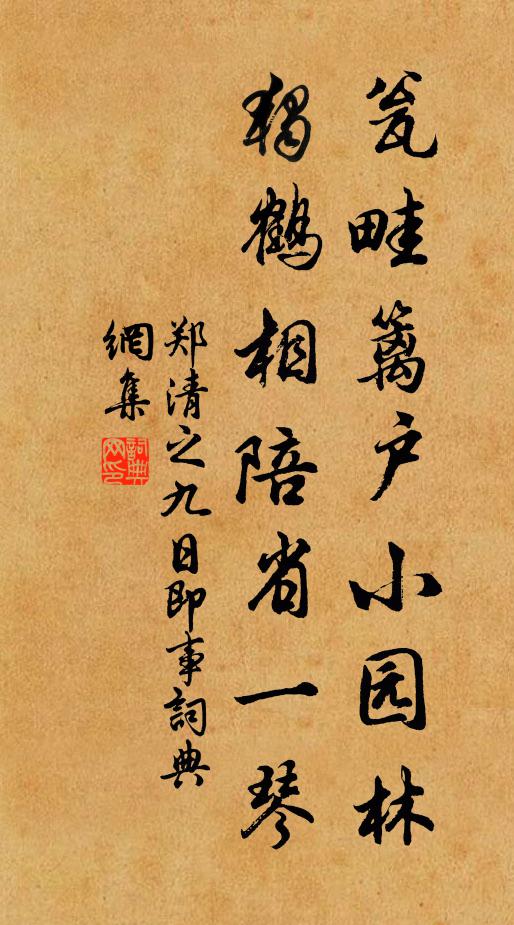 瓮畦篱户小园林
独鹤相陪省一琴
郑清之九日即事詞典
網集
詞典网印